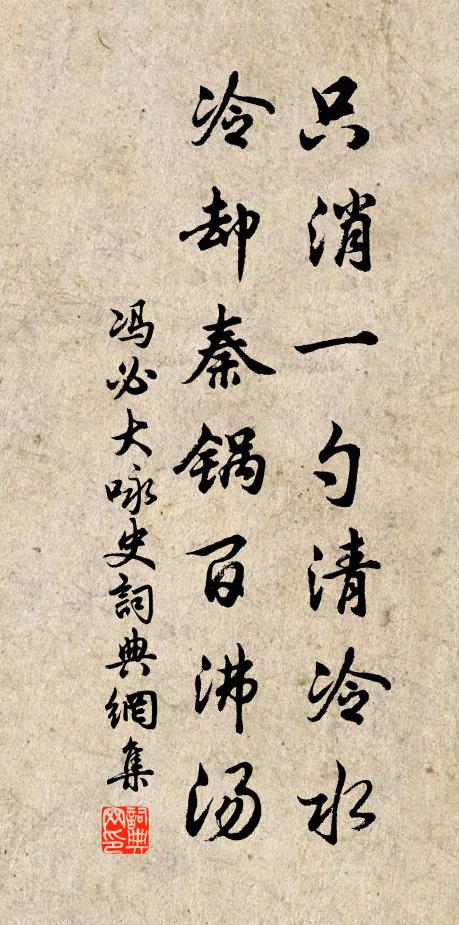 只消一勺清冷水
冷却秦锅百沸汤
冯必大咏史詞典網集
詞典网印